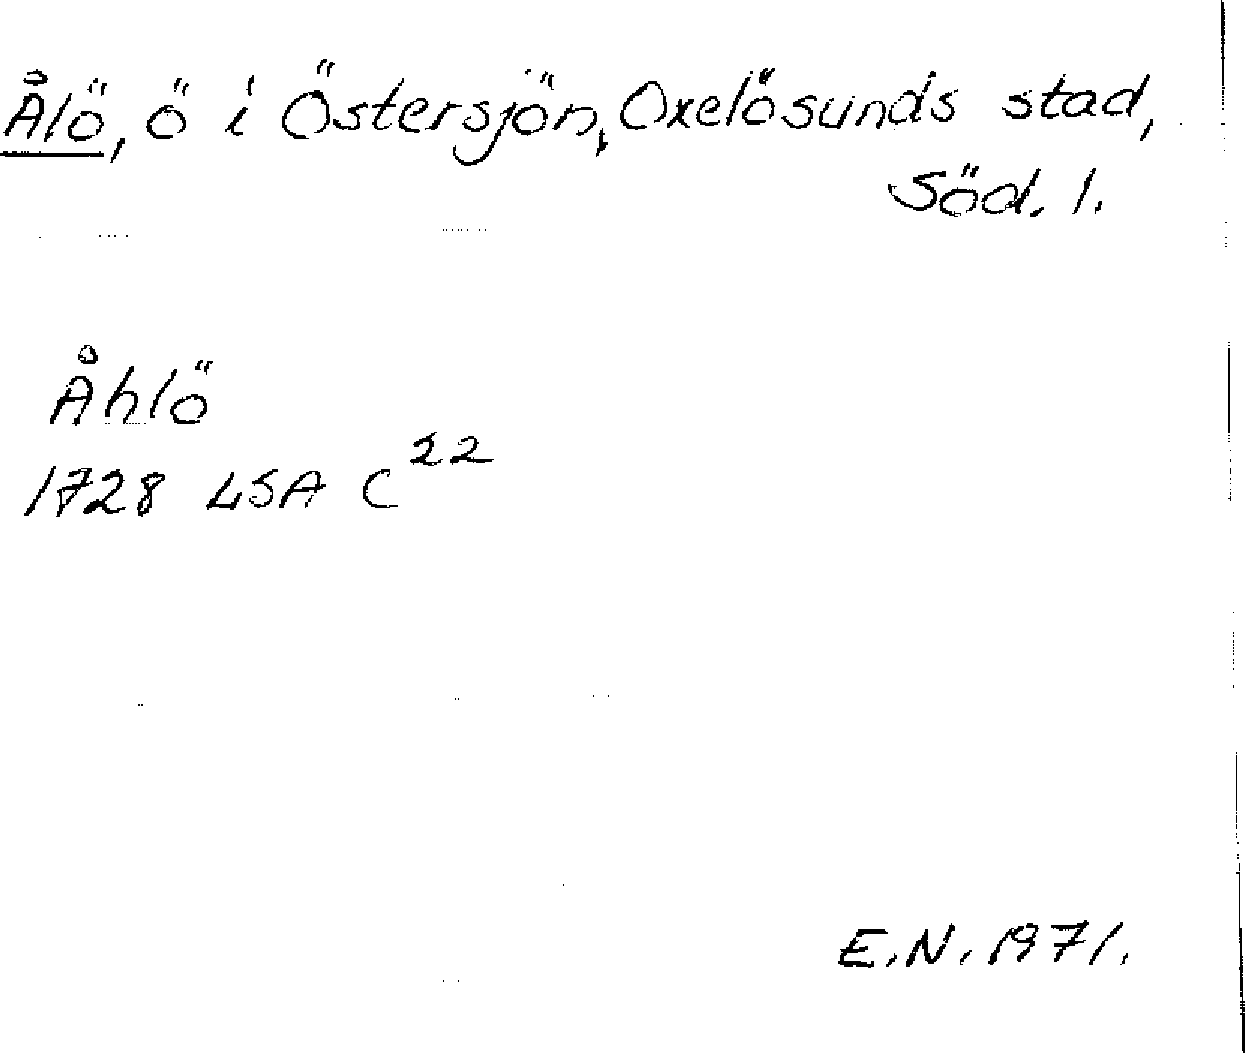 Ålö, ö i Östersjön, Oxelösunds stad,
Söd. l.
Åhlö
1728 LSA C22
E.N. 1971.